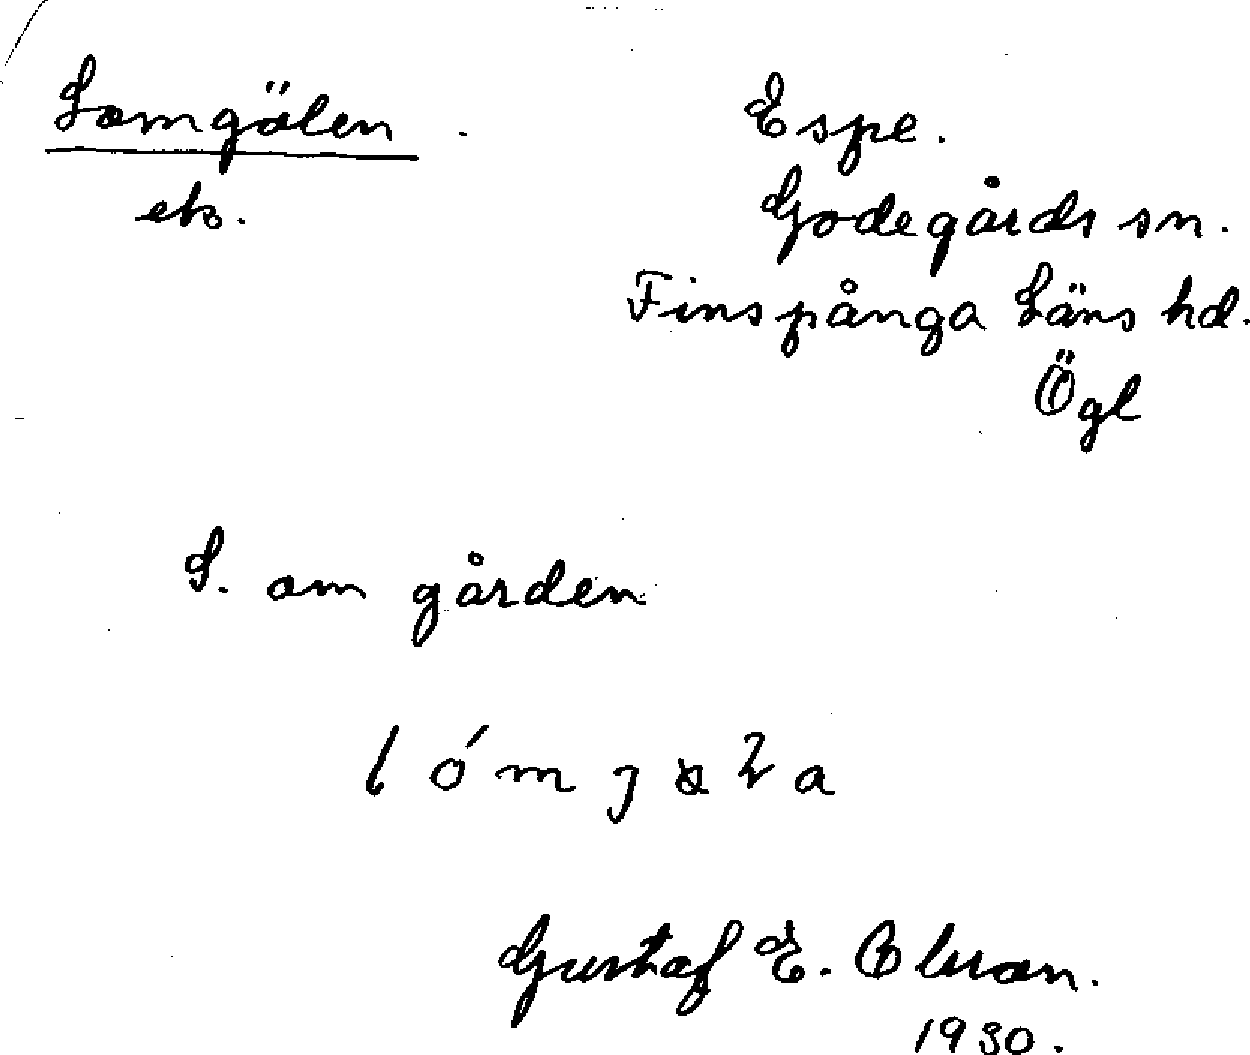 Lomgölen
ek.
Espe.
Godegårds sn.
Finspånga Läns hd.
Ögl
S. om gården
Gustaf E. Olsson.
1930.